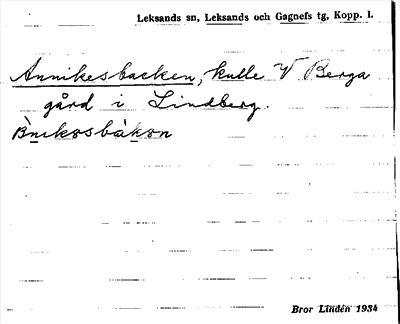 Leksands sn, Leksands och Gagnefs tg, Kopp. l.
Annikesbacken, kulle V Berga
gård i Lindberg.
Bror Lindén 1934